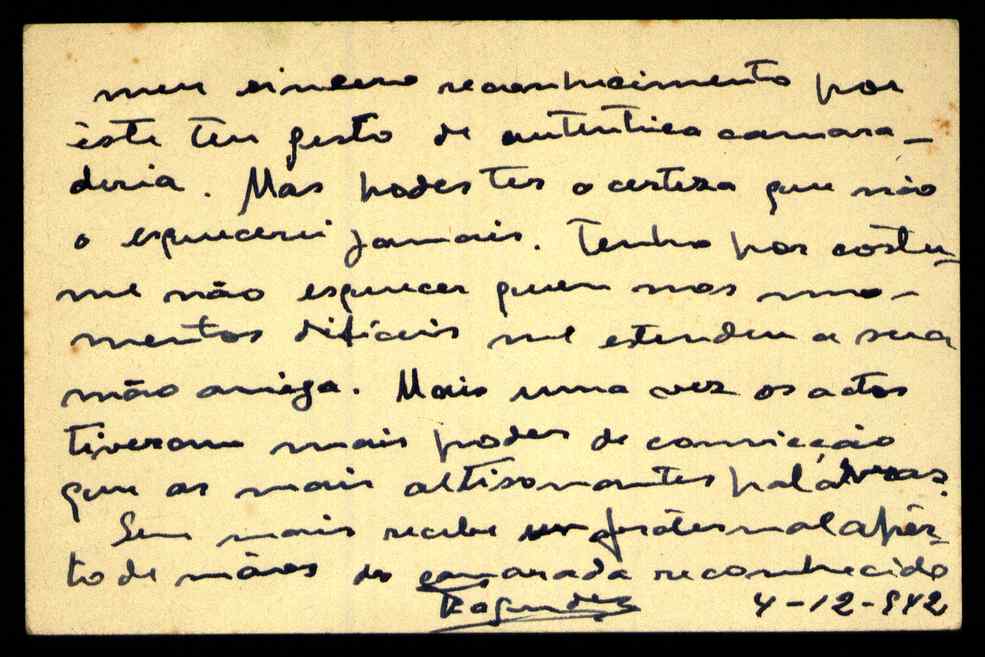 meu sincero reconhecimento por
êste teu gesto de autentica camara-
deria. Mas podes ter a certeza que não
o esquecerei jamais. Tenho por costu-
me não esquecer quem nos mo-
mentos difíceis me estendeu a sua
mão amiga. Mais uma vez os actos
tiveram mais poder de convicção
que as mais altisonantes palávras.
Sem mais recebe um fraternal apêr-
to de mãos do camarada reconhecido
4-12-942